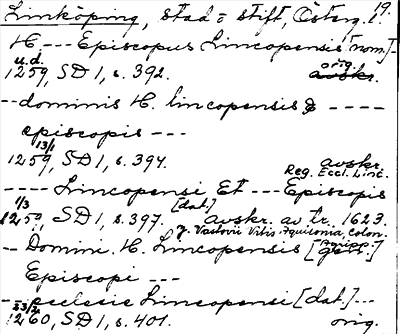 Linköping, stad o stift, Österg. l. 19.
H. --- Episcopus Lincopensis [nom.] -
u.d. orig.
1259, SD 1, s. 392. avskr.
-- dominis H. lincopensis & ----
episcopis ---
13/1 avskr.
1259, SD 1, s. 394. Reg. Eccl. Linc.
---- Lincopensi Et --- Episcopis
1/3 [dat.]
1259, SD 1, s. 397. avskr. av tr. 1623.
J. Vastovii Vitis Aquilonia, Colon.
-- Domini. H. Lincopensis [gen.]
Episcopi ---
-- ecclesie Lincopensi [dat.] --
23/2
1260, SD 1, s. 401. orig.